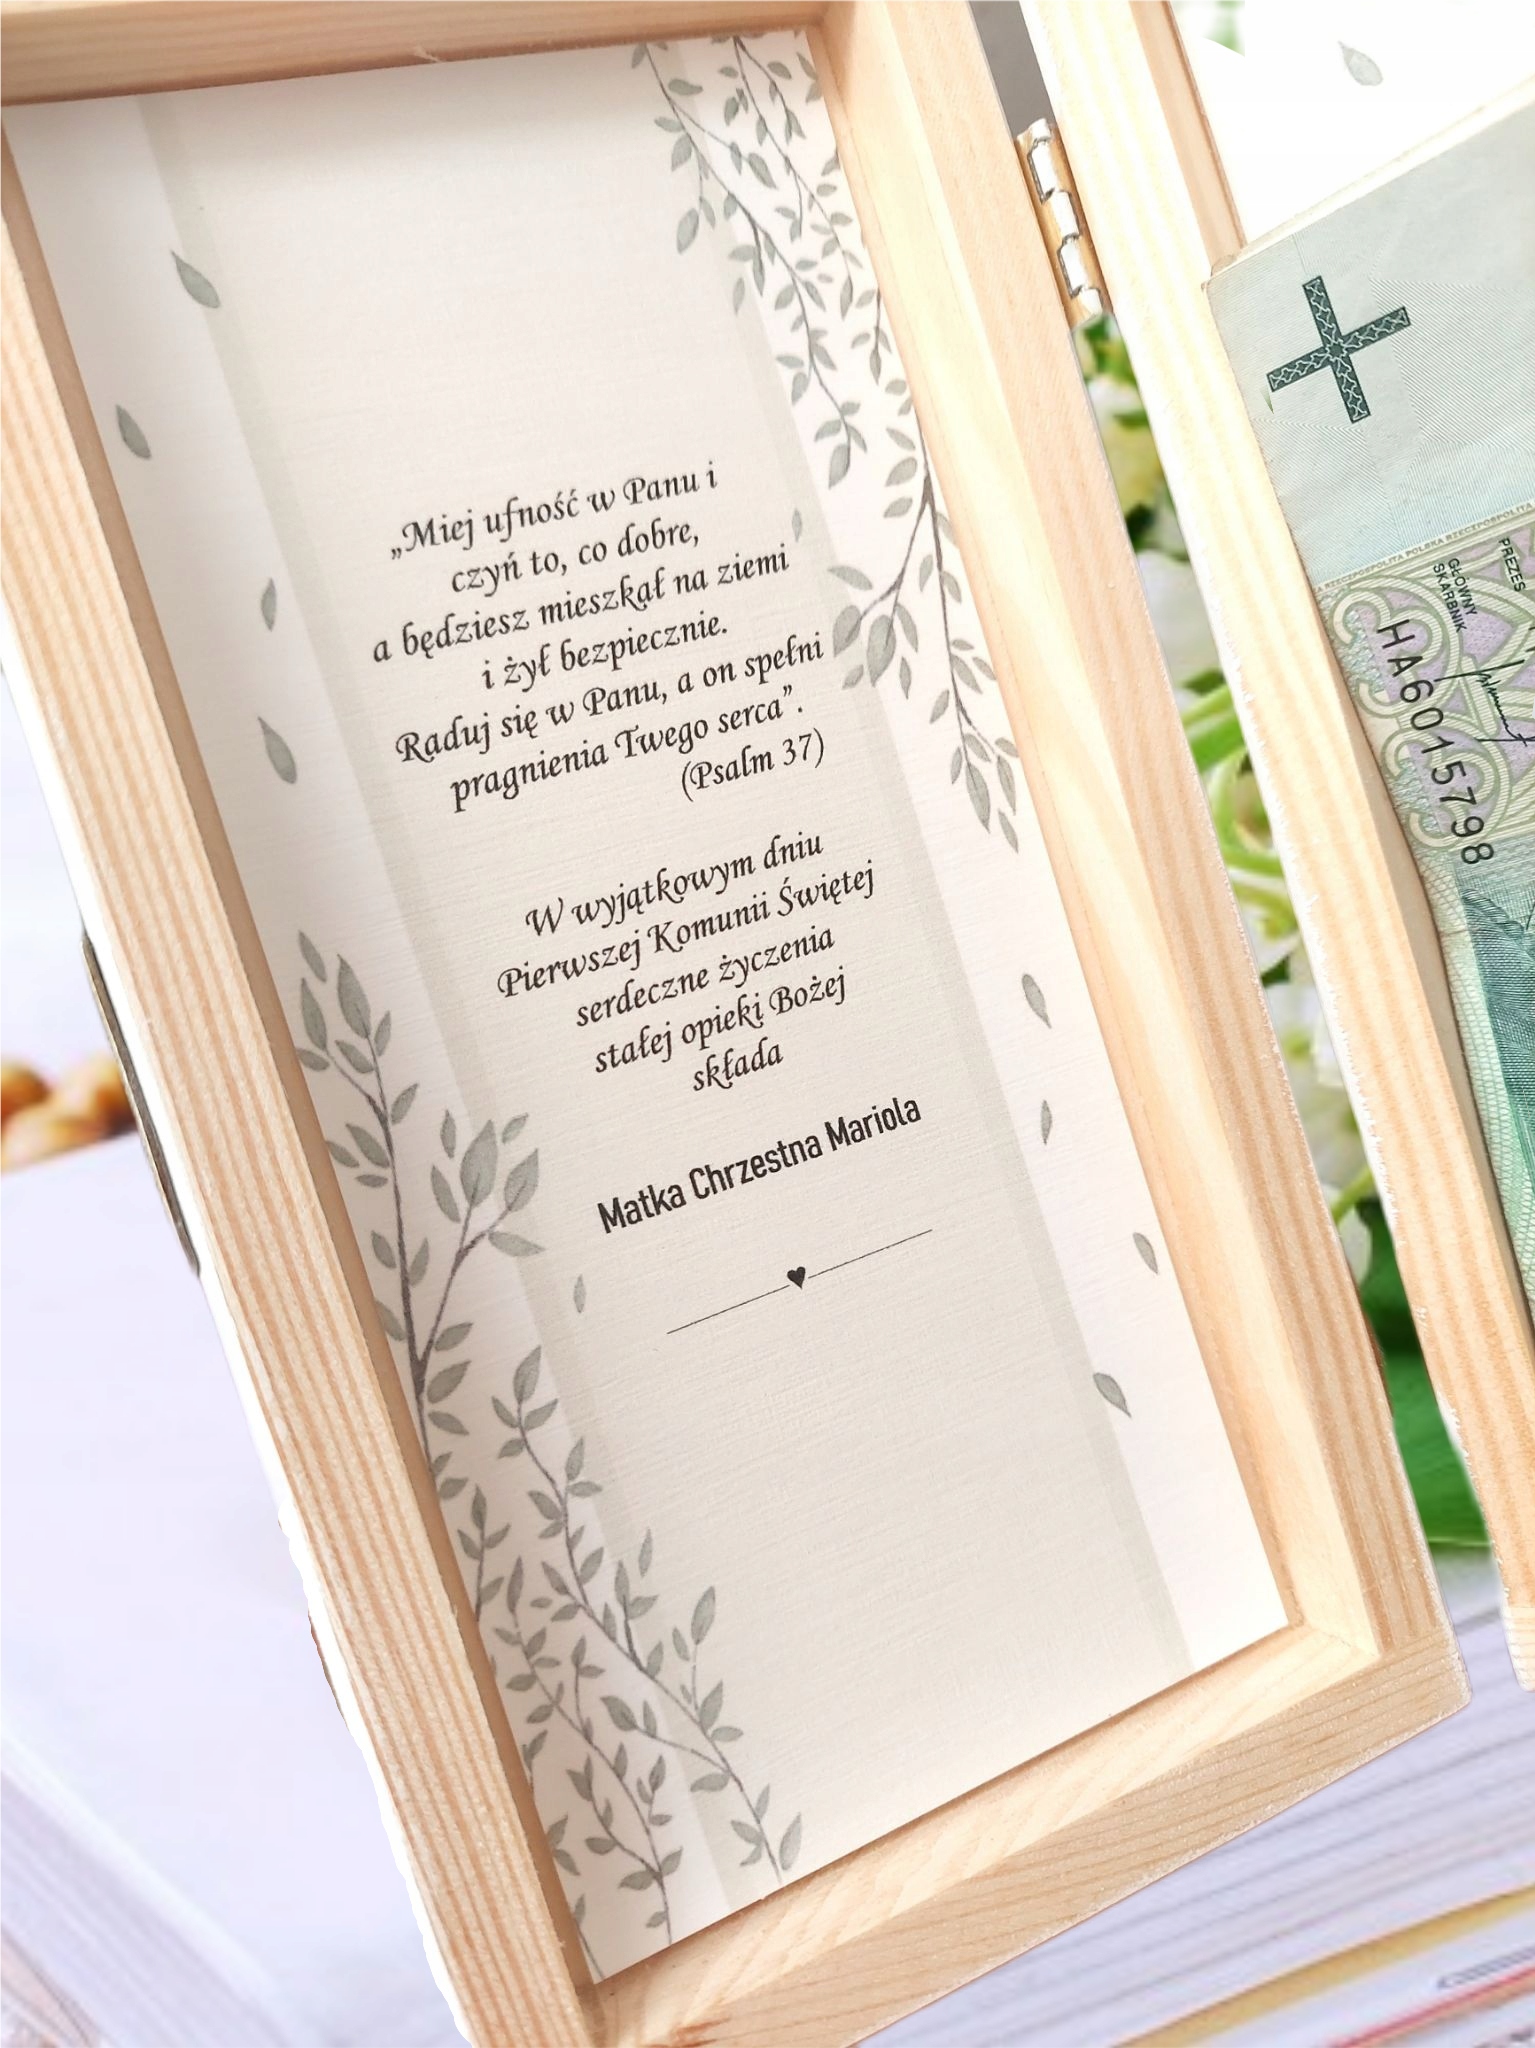 „Miej ufność w Panu i
czyń to, co dobre,
a będziesz mieszkał na ziemi
i żył bezpiecznie.
Raduj się w Panu, a on spełni
pragnienia Twego serca”.
(Psalm 37)
W wyjątkowym dniu
Pierwszej Komunii Świętej
serdeczne życzenia
stałej opieki Bożej
składa
Matka Chrzestna Mariola
RZECZPOSPOLITA POLSKA RZECZPOSPOLITA
PREZES
GŁÓWNY
SKARBNIK
HA6015798